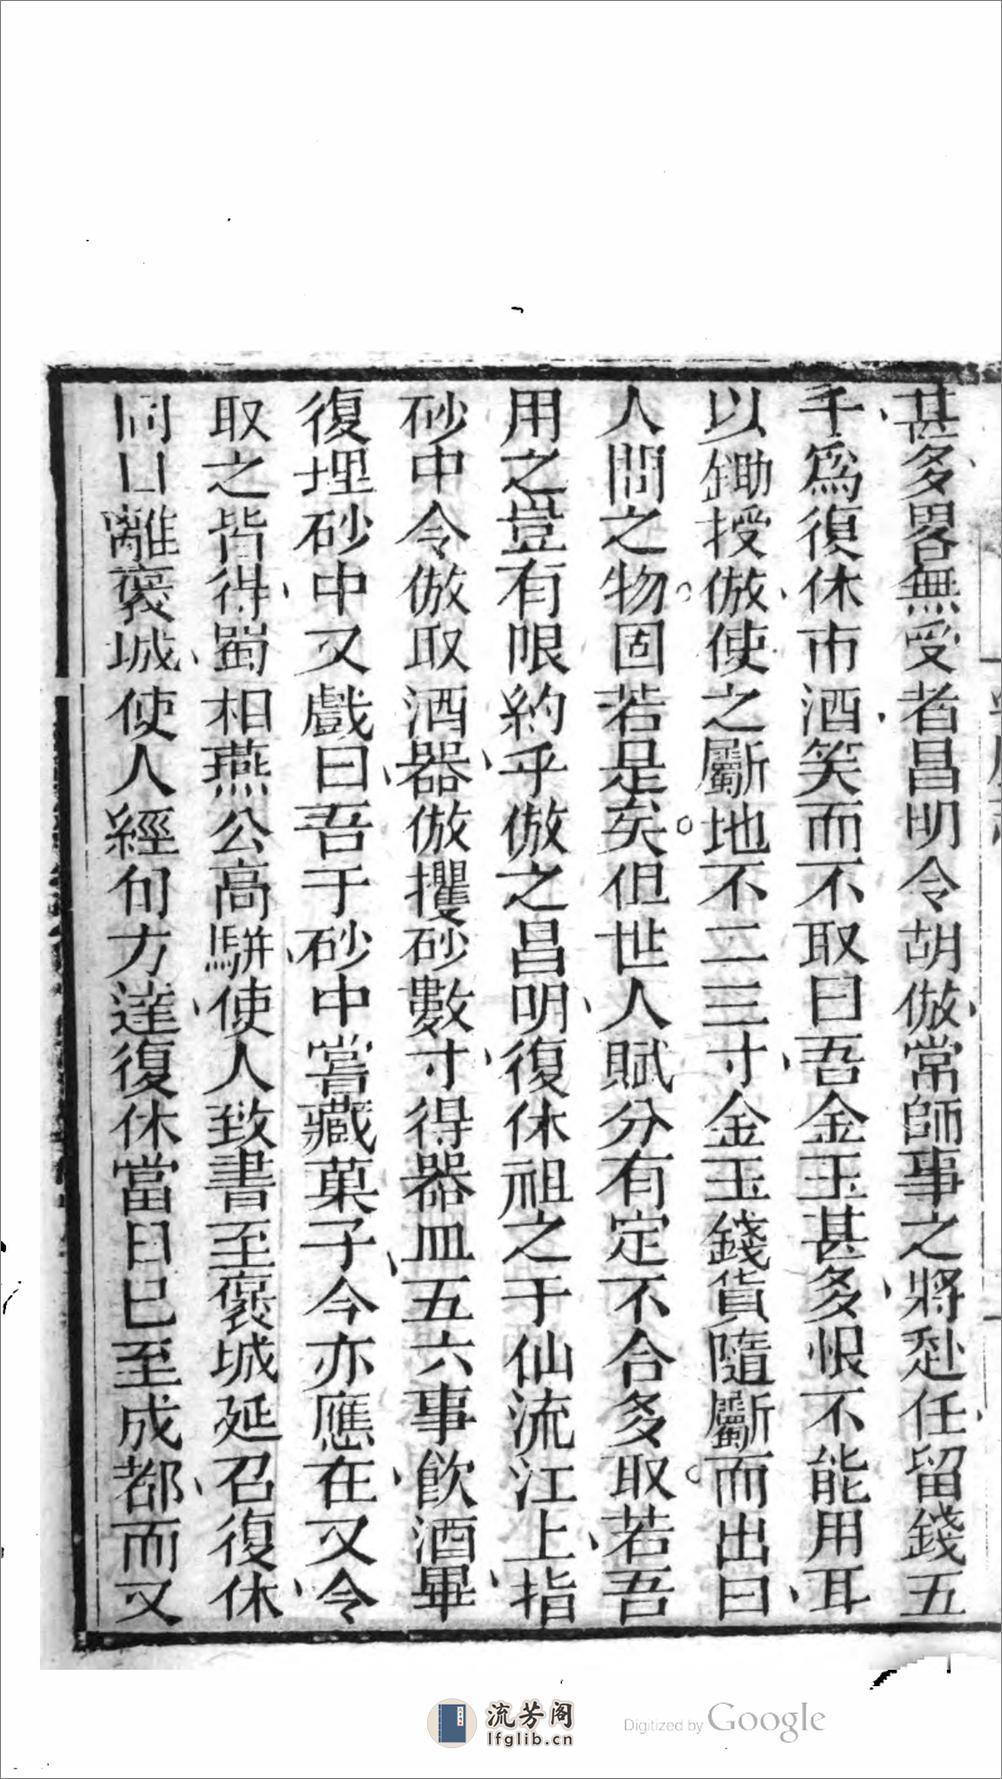 甚多畧無受者昌明令胡倣常師事之將赴任留錢五
千爲復休市酒笑而不取曰吾金玉甚多恨不能用耳
以鋤授倣使之斸地不二三寸金玉錢貨隨斸而出曰
人間之物固若是矣但世人賦分有定不合多取若吾
用之豈有限約乎倣之昌明復休祖之于仙流江上指
砂中令倣取酒器倣攫砂數寸得器皿五六事飲酒畢
復埋砂中又戲曰吾于砂中嘗藏菓子今亦應在又令
取之皆得蜀相燕公高駢使人致書至褒城延召復休
同日離褒城使人經旬方達復休當日已至成都而又
流芳阁
lfglib.cn
Digitized by Google